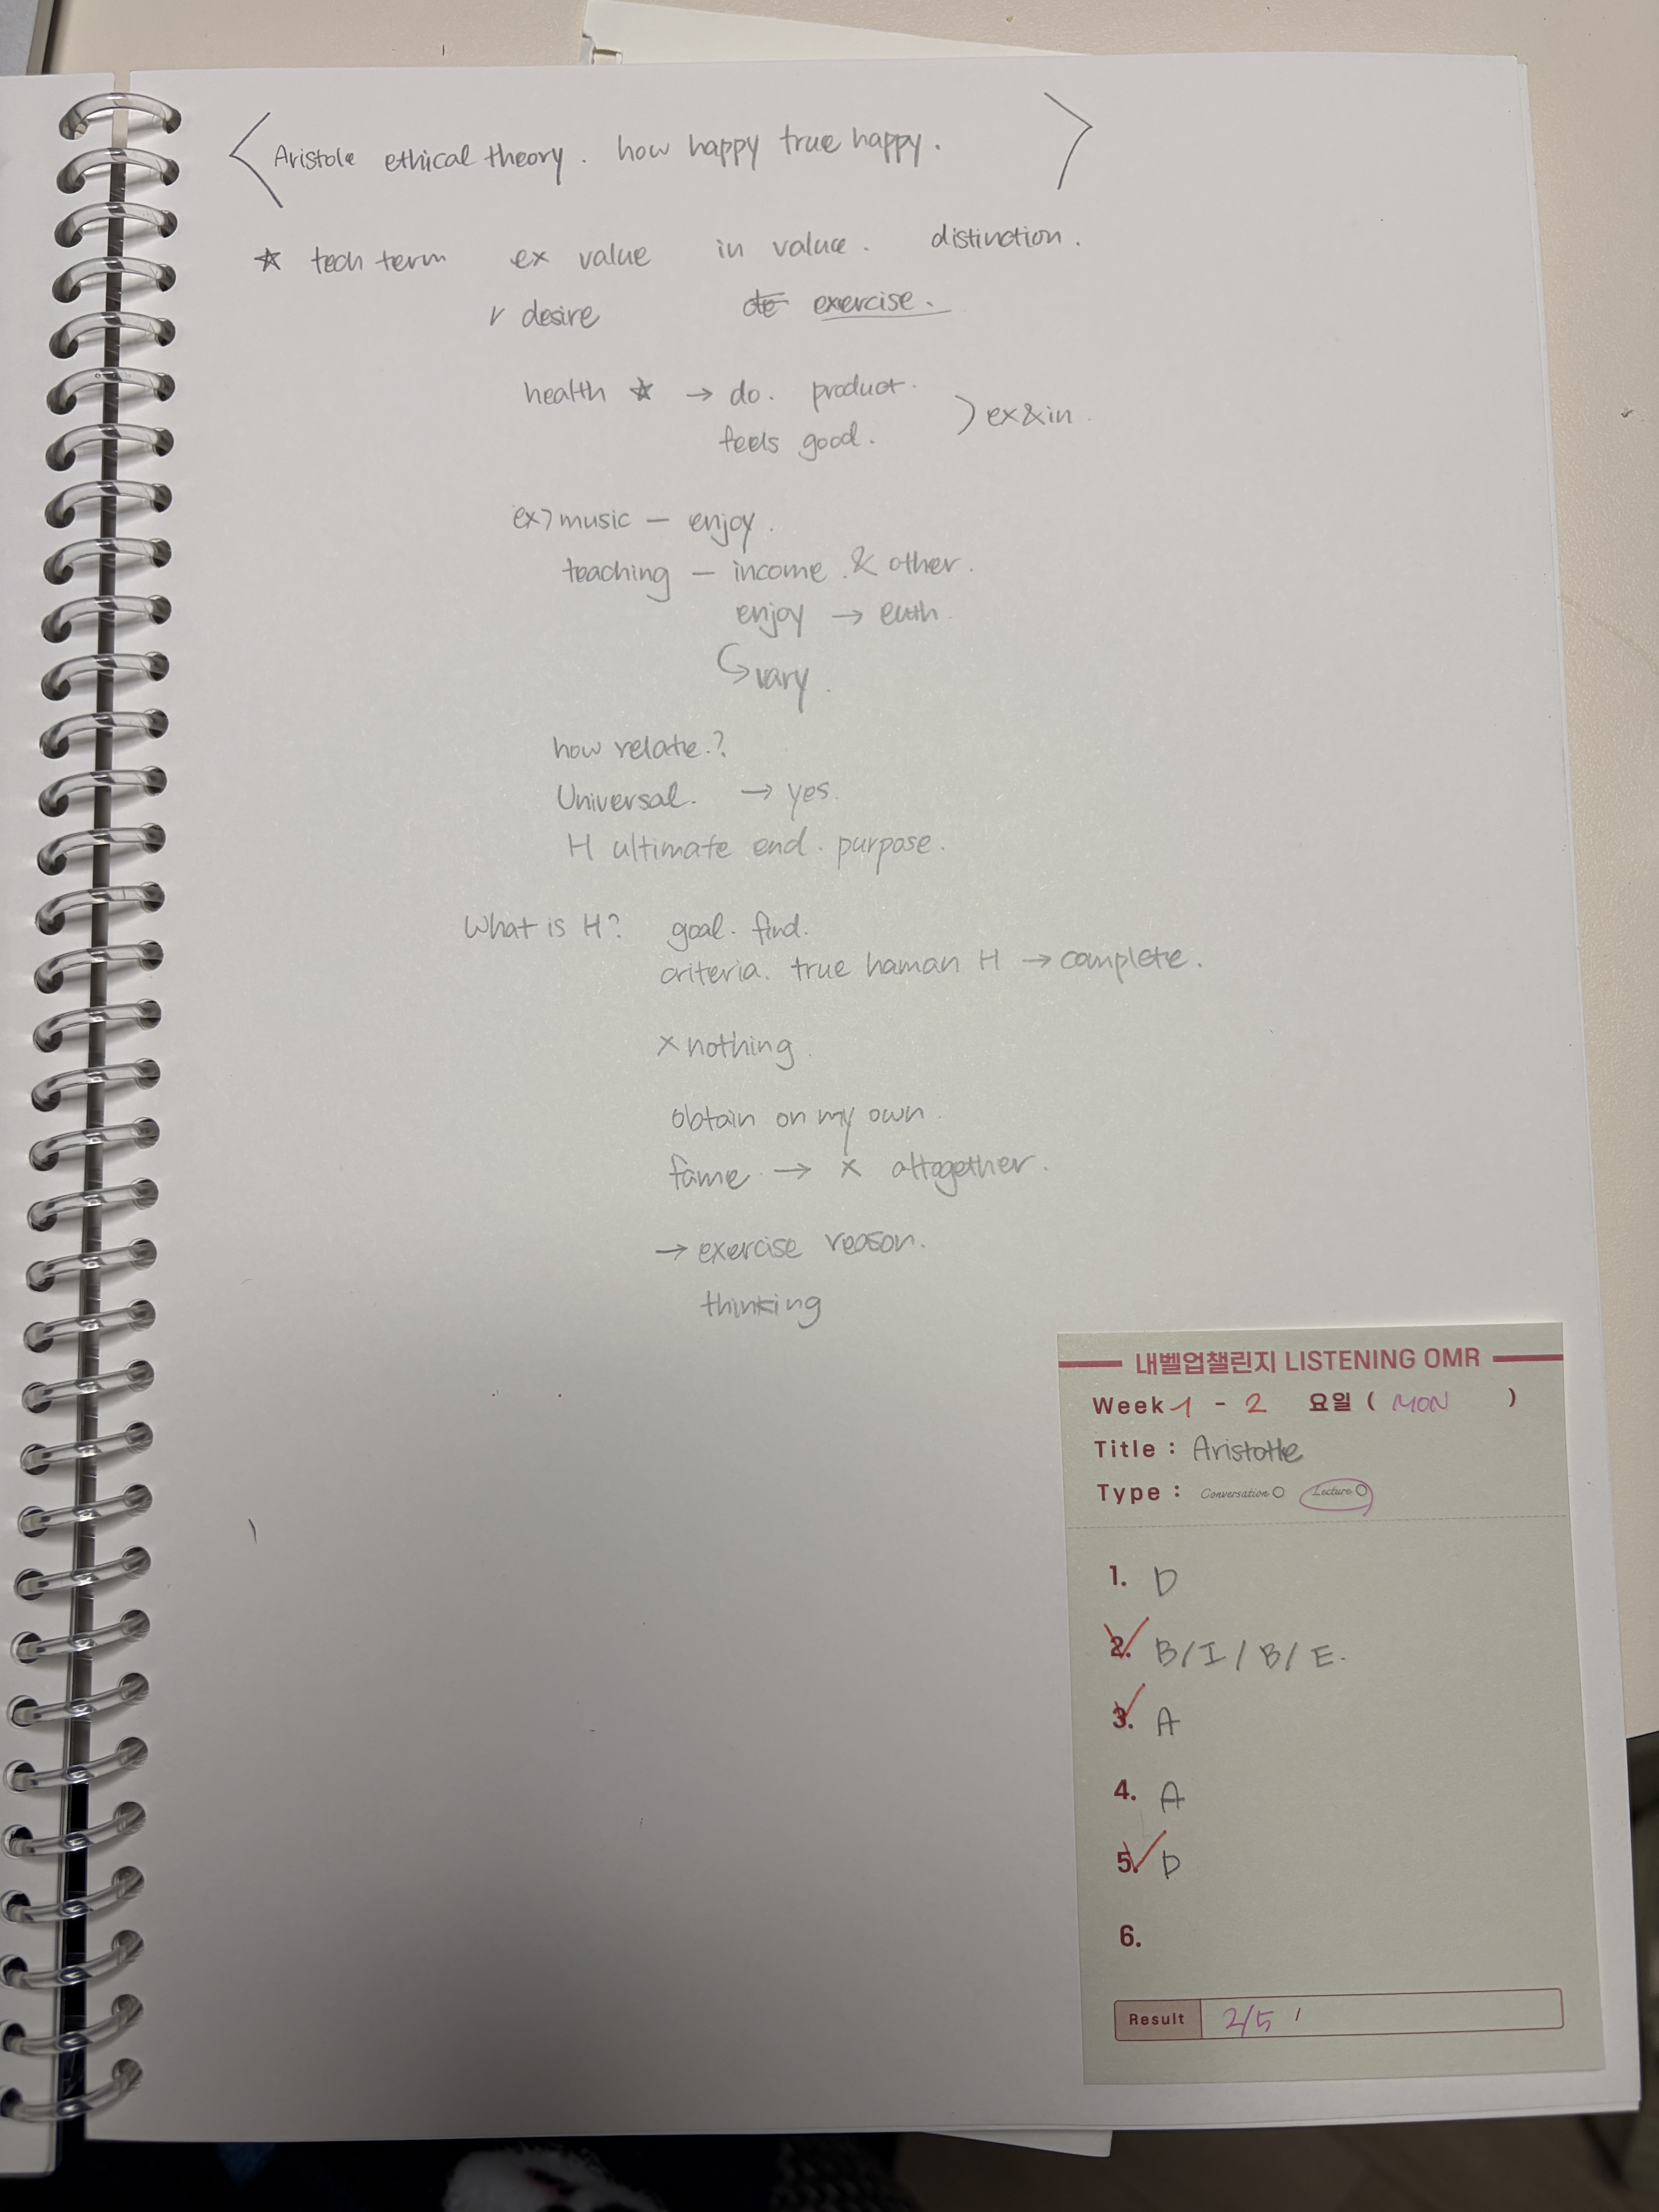 Aristole ethical theory. how happy true happy.
☆ tech term ex value in value. distinction.
r desire exercise.
health ☆ → do. product.
feels good. ) ex&in.
ex) music – enjoy.
teaching – income. & other.
enjoy → enth.
↳ vary.
how relate.?
Universal. → yes.
H ultimate end. purpose.
What is H? goal. find.
criteria. true haman H → complete.
x nothing.
obtain on my own.
fame → x altogether.
→ exercise reason.
thinking
내벨업챌린지 LISTENING OMR
Week 1 - 2 요일 ( MON )
Title : Aristotle
Type : Conversation O Lecture O
1. D
2. B/I/B/E.
3. A
4. A
5. D
6.
Result 2/5